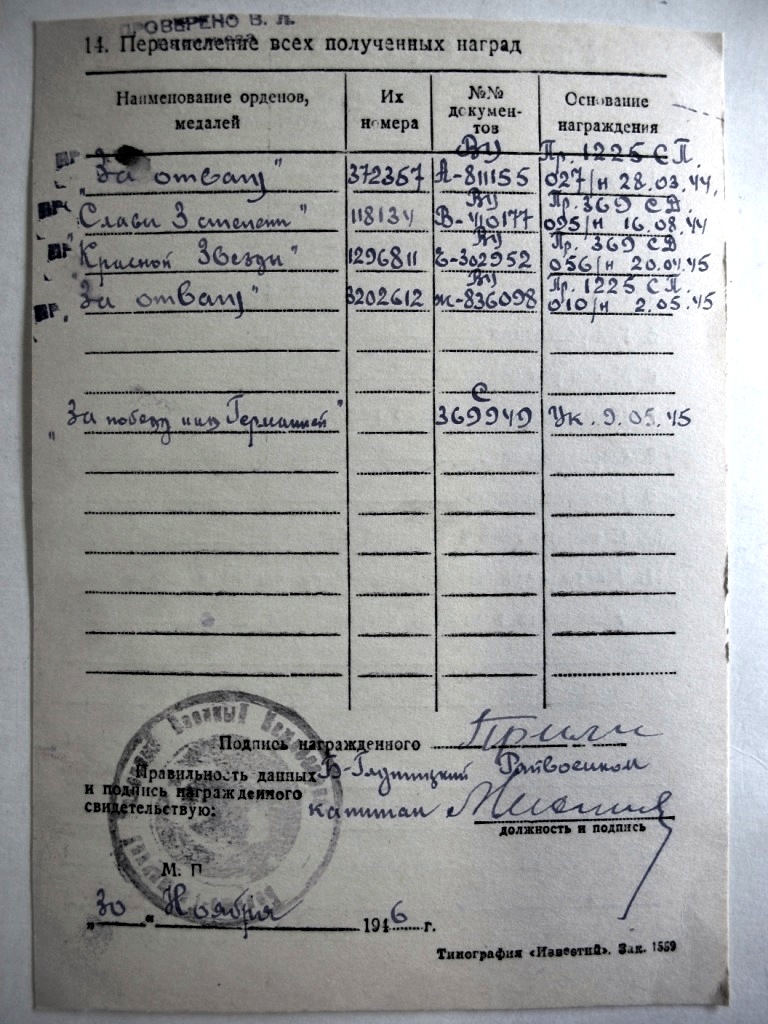 ПРОВЕРЕНО В. Л.
14. Перечисление всех полученных наград
Наименование орденов, медалей
Их номера
№№ документов
Основание награждения
„За отвагу" 372357 ВУ А-811155 Пр. 1225 СП. 027/н 28.03.44.
„Слави 3 степени" 118134 ВУ В-410177 Пр. 369 СД 095/н 16.08.44
„Красной Звезди" 1296811 ВУ Е-302952 Пр. 369 СД. 056/н 20.04.45
„За отвагу" 3202612 ВУ Ж-836098 Пр. 1225 СП. 010/н 2.05.45
„За победу над Германией" С 369949 Ук. 9.05.45
Подпись награжденного
Правильность данных Райвоенком
и подпись награжденного
свидетельствую: капитан
должность и подпись
М. П
„30" Ноября 1946 г.
Типография «Известий». Зак. 1559